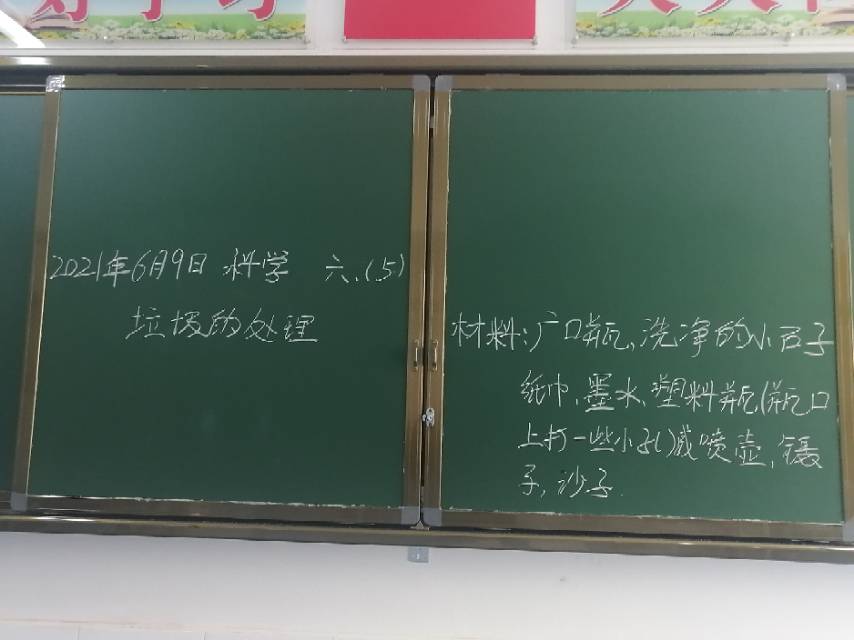 学习
天天
2021年6月9日 科学 六.(5)
垃圾的处理
材料:广口瓶、洗净的小石子
纸巾、墨水、塑料瓶(瓶口
上打一些小孔)或喷壶、镊
子,沙子.